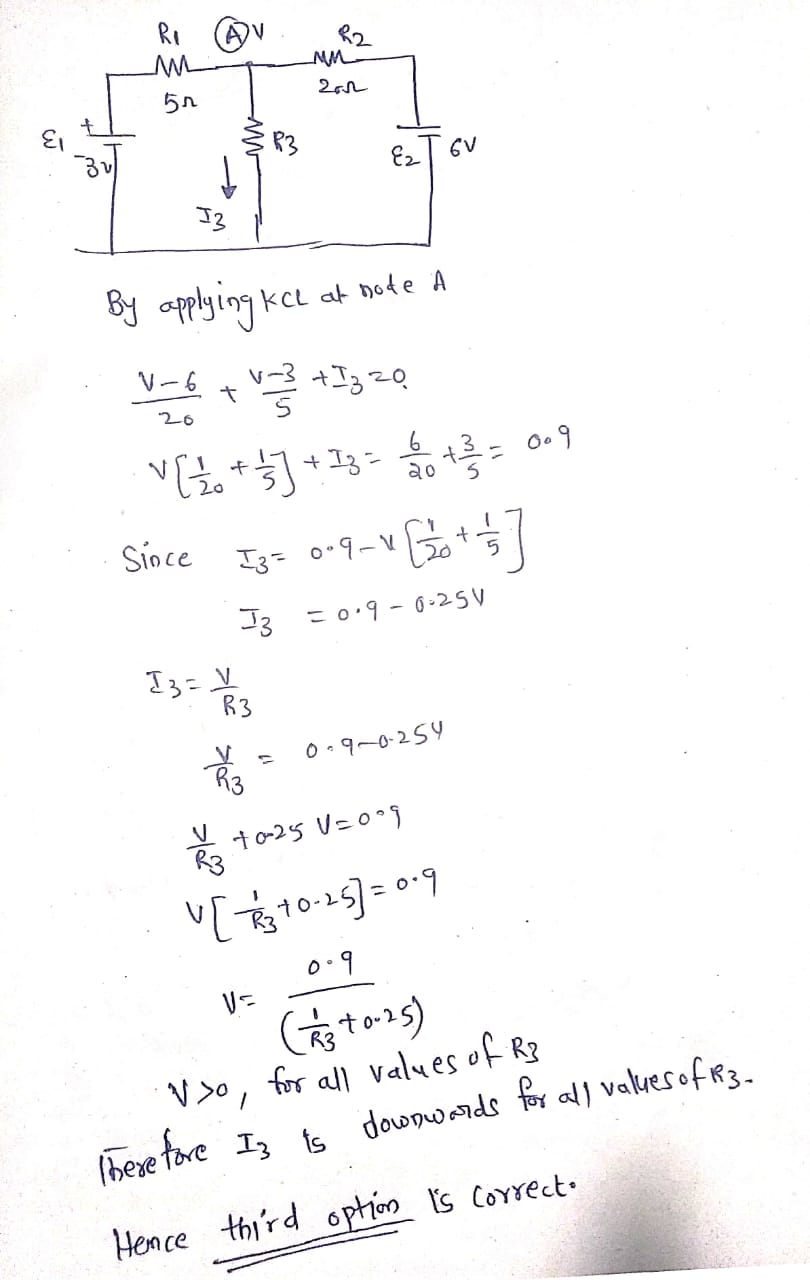 R1 Ⓐ V R2
5Ω 20Ω
+
ε1 R3 ε2 6V
-3v
I3
By applying KCL at note A
V-6/20 + V-3/5 + I3 = 0
V[1/20 + 1/5] + I3 = 6/20 + 3/5 = 0.9
Since I3 = 0.9 - V[1/20 + 1/5]
I3 = 0.9 - 0.25V
I3 = V/R3
V/R3 = 0.9 - 0.25V
V/R3 + 0.25 V = 0.9
V[1/R3 + 0.25] = 0.9
V = 0.9/(1/R3 + 0.25)
V > 0, for all values of R3
Therefore I3 is downwards for all values of R3.
Hence third option is correct.